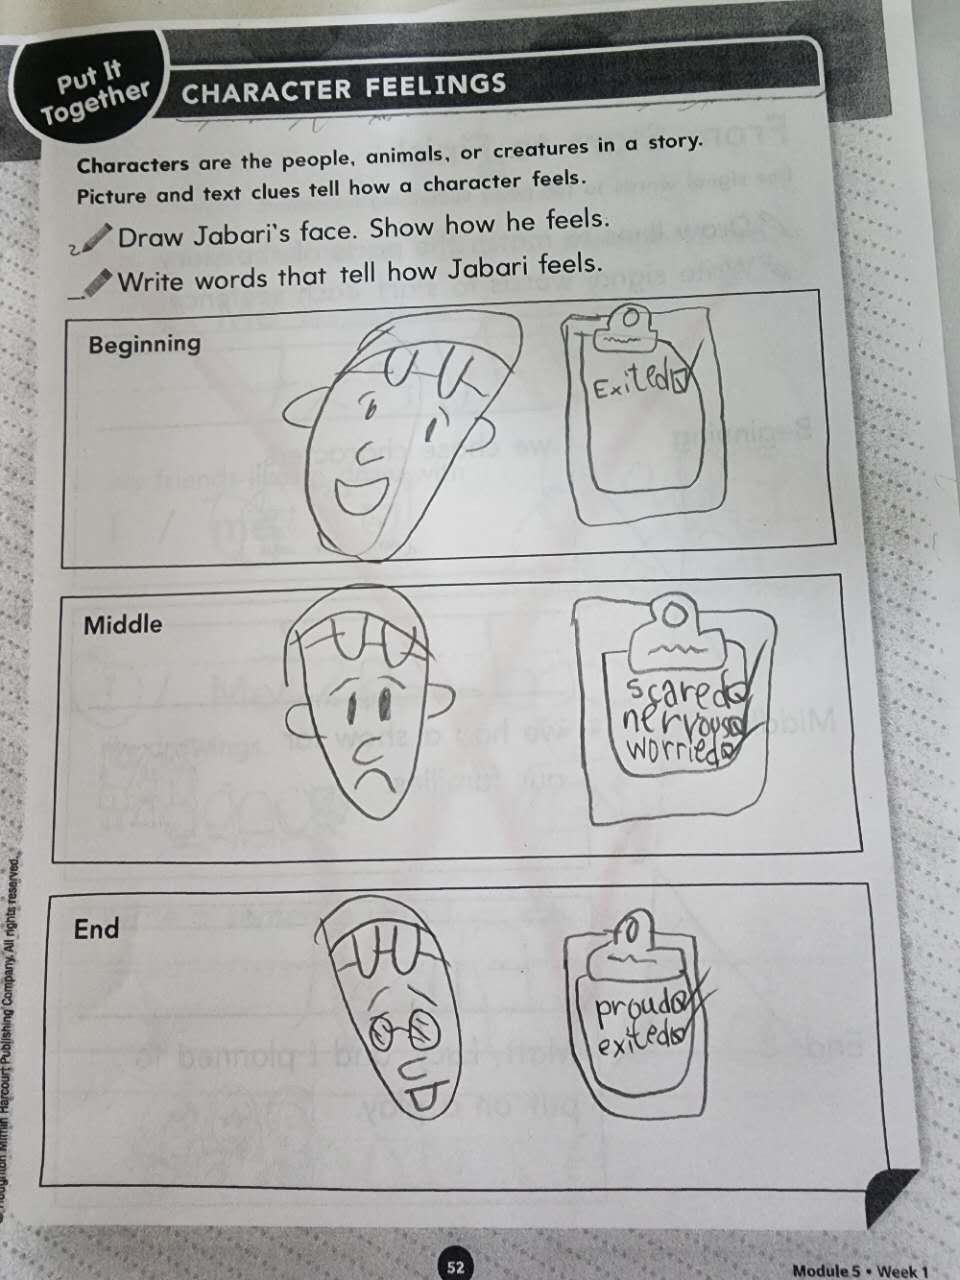 Put It
Together
CHARACTER FEELINGS
Characters are the people, animals, or creatures in a story.
Picture and text clues tell how a character feels.
2 Draw Jabari's face. Show how he feels.
Write words that tell how Jabari feels.
Beginning
Exited
Middle
scared
nervous
worried
End
proud
exited
Houghton Mifflin Harcourt Publishing Company. All rights reserved.
52
Module 5 • Week 1